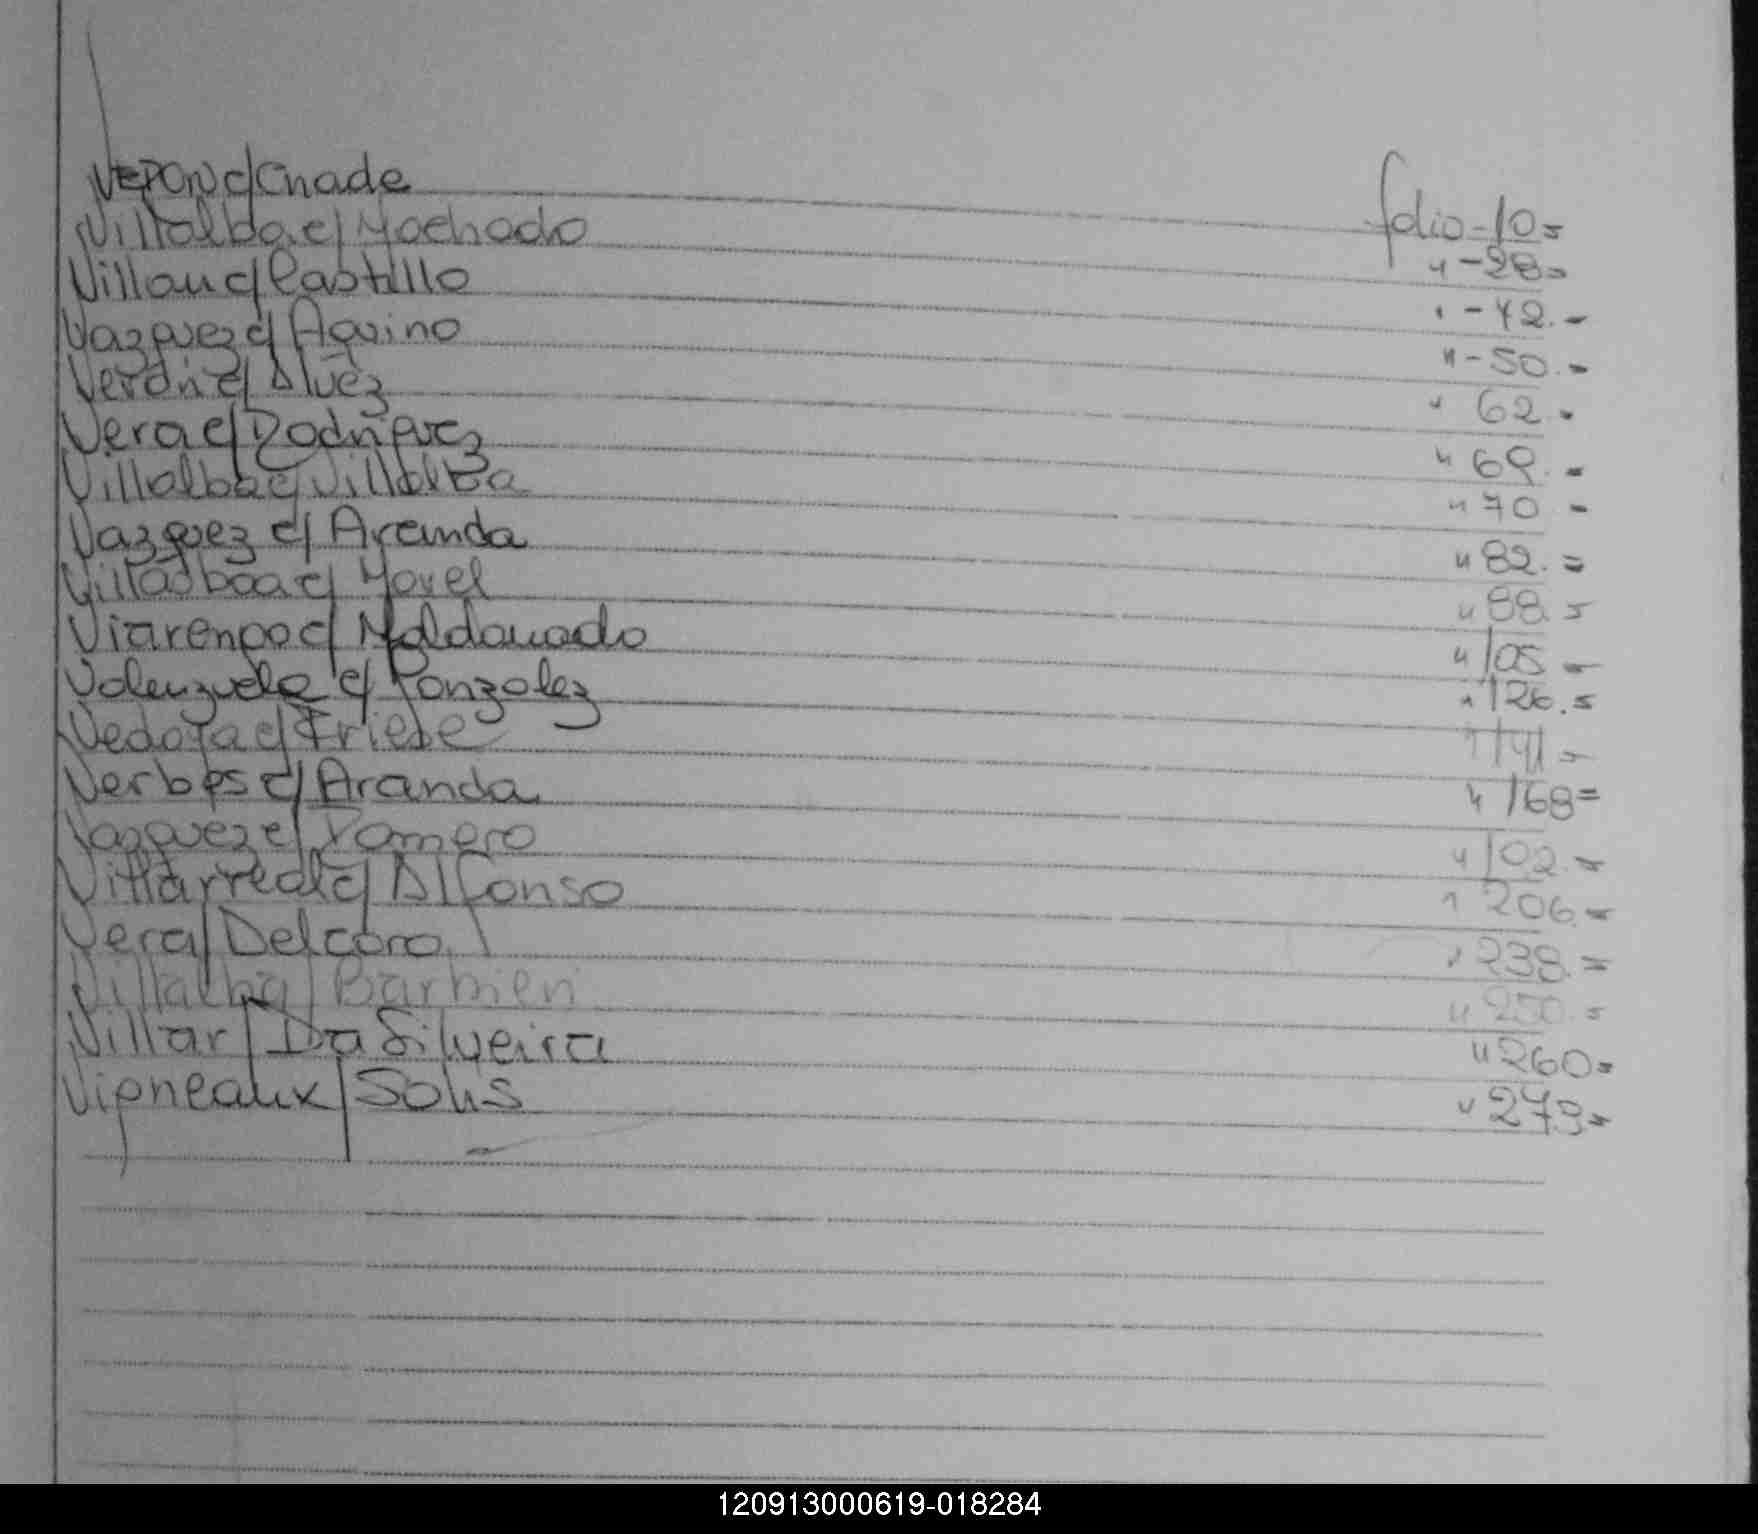 VERON c/ Cnade folio - 10 =
Villalba c/ Machado " - 28 =
Villan c/ Castillo " - 42. -
Vazquez c/ Aquino " - 50. -
Verón c/ Alvez " 62. -
Vera c/ Rodriguez " 69. -
Villalba c/ Villalba " 70 -
Vazquez c/ Aranda " 82. =
Villasboa c/ Morel " 88. =
Viarengo c/ Maldonado " 105 =
Valenzuela c/ Gonzalez " 126. =
Vedoya c/ Friese " 141 =
c/ Aranda " 168 =
Vazquez c/ Romero =
Villarreal c/ Alfonso " 206. =
Vera / Delcoro " 238. =
Villalba / Barbieri " 250. =
Villar / Da Silveira " 260 =
Vigneaux / Solis " 279 =
120913000619-018284